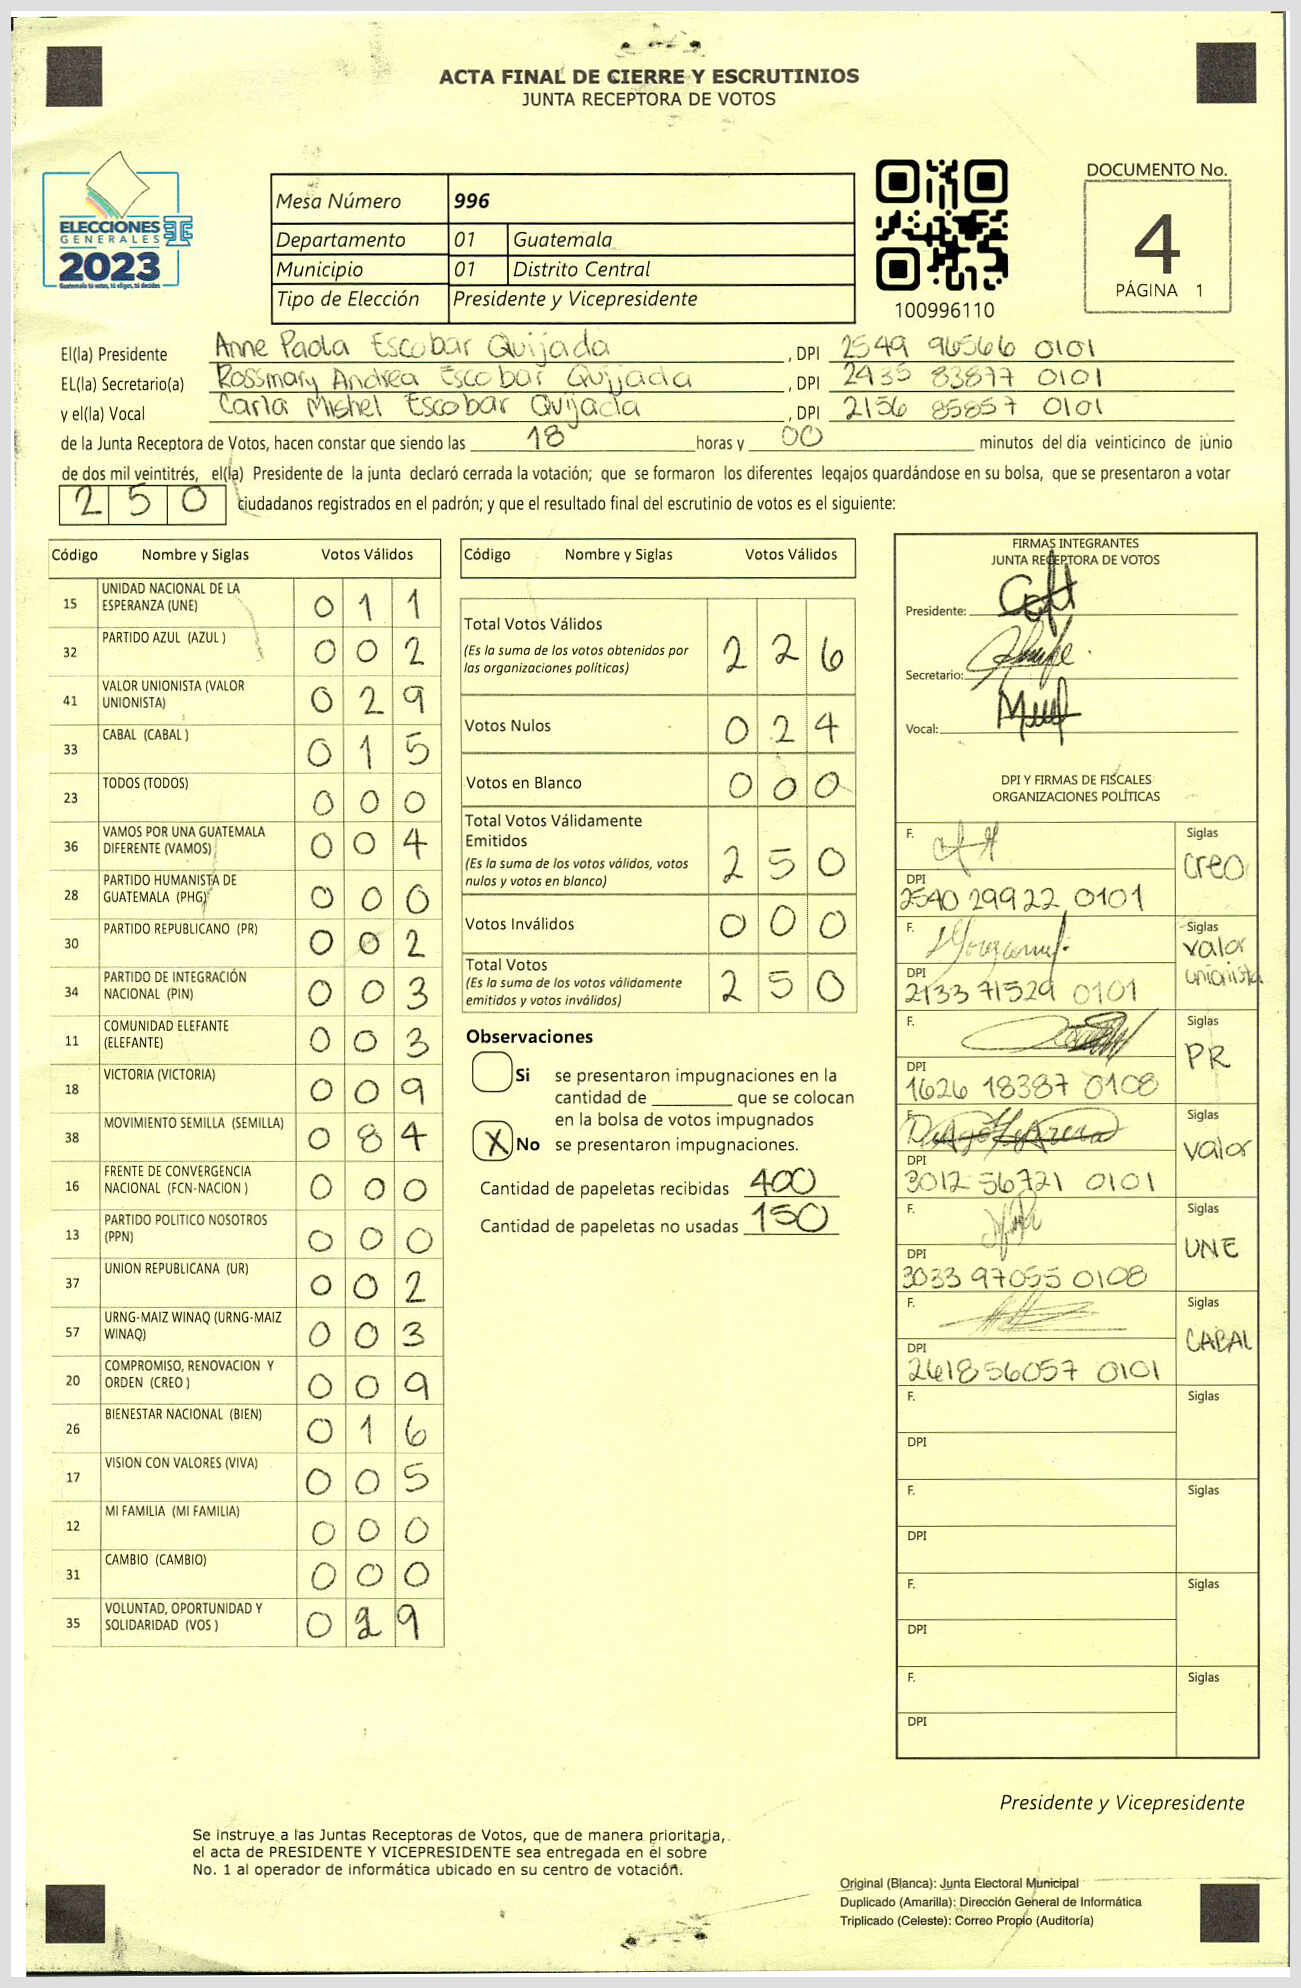 ACTA FINAL DE CIERRE Y ESCRUTINIOS
JUNTA RECEPTORA DE VOTOS
ELECCIONES
GENERALES
2023
Guatemala tú votas, tú eliges, tú decides
Mesa Número 996
Departamento 01 Guatemala
Municipio 01 Distrito Central
Tipo de Elección Presidente y Vicepresidente
100996110
DOCUMENTO No.
4
PÁGINA 1
El(la) Presidente Anne Paola Escobar Quijada , DPI 2549 96566 0101
EL(la) Secretario(a) Rossmary Andrea Escobar Quijada , DPI 2435 83877 0101
y el(la) Vocal Carla Mishel Escobar Quijada , DPI 2156 85857 0101
de la Junta Receptora de Votos, hacen constar que siendo las 18 horas y 00 minutos del día veinticinco de junio
de dos mil veintitrés, el(la) Presidente de la junta declaró cerrada la votación; que se formaron los diferentes legajos guardándose en su bolsa, que se presentaron a votar
250 ciudadanos registrados en el padrón; y que el resultado final del escrutinio de votos es el siguiente:
Código Nombre y Siglas Votos Válidos
15 UNIDAD NACIONAL DE LA ESPERANZA (UNE) 0 1 1
32 PARTIDO AZUL (AZUL ) 0 0 2
41 VALOR UNIONISTA (VALOR UNIONISTA) 0 2 9
33 CABAL (CABAL ) 0 1 5
23 TODOS (TODOS) 0 0 0
36 VAMOS POR UNA GUATEMALA DIFERENTE (VAMOS) 0 0 4
28 PARTIDO HUMANISTA DE GUATEMALA (PHG) 0 0 0
30 PARTIDO REPUBLICANO (PR) 0 0 2
34 PARTIDO DE INTEGRACIÓN NACIONAL (PIN) 0 0 3
11 COMUNIDAD ELEFANTE (ELEFANTE) 0 0 3
18 VICTORIA (VICTORIA) 0 0 9
38 MOVIMIENTO SEMILLA (SEMILLA) 0 8 4
16 FRENTE DE CONVERGENCIA NACIONAL (FCN-NACION ) 0 0 0
13 PARTIDO POLITICO NOSOTROS (PPN) 0 0 0
37 UNION REPUBLICANA (UR) 0 0 2
57 URNG-MAIZ WINAQ (URNG-MAIZ WINAQ) 0 0 3
20 COMPROMISO, RENOVACION Y ORDEN (CREO ) 0 0 9
26 BIENESTAR NACIONAL (BIEN) 0 1 6
17 VISION CON VALORES (VIVA) 0 0 5
12 MI FAMILIA (MI FAMILIA) 0 0 0
31 CAMBIO (CAMBIO) 0 0 0
35 VOLUNTAD, OPORTUNIDAD Y SOLIDARIDAD (VOS ) 0 2 9
Código Nombre y Siglas Votos Válidos
Total Votos Válidos 2 2 6
(Es la suma de los votos obtenidos por
las organizaciones políticas)
Votos Nulos 0 2 4
Votos en Blanco 0 0 0
Total Votos Válidamente
Emitidos 2 5 0
(Es la suma de los votos válidos, votos
nulos y votos en blanco)
Votos Inválidos 0 0 0
Total Votos 2 5 0
(Es la suma de los votos válidamente
emitidos y votos inválidos)
Observaciones
Si se presentaron impugnaciones en la
cantidad de ________ que se colocan
en la bolsa de votos impugnados
X No se presentaron impugnaciones.
Cantidad de papeletas recibidas 400
Cantidad de papeletas no usadas 150
FIRMAS INTEGRANTES
JUNTA RECEPTORA DE VOTOS
Presidente:
Secretario:
Vocal:
DPI Y FIRMAS DE FISCALES
ORGANIZACIONES POLÍTICAS
F. Siglas
creo
DPI
2540 29922 0101
F. Siglas
valor
unionista
DPI
2133 71529 0101
F. Siglas
PR
DPI
1626 18387 0108
F. Siglas
valor
DPI
3012 56721 0101
F. Siglas
UNE
DPI
3033 97055 0108
F. Siglas
CABAL
DPI
2618 56057 0101
F. Siglas
DPI
F. Siglas
DPI
F. Siglas
DPI
F. Siglas
DPI
Presidente y Vicepresidente
Se instruye a las Juntas Receptoras de Votos, que de manera prioritaria,
el acta de PRESIDENTE Y VICEPRESIDENTE sea entregada en el sobre
No. 1 al operador de informática ubicado en su centro de votación.
Original (Blanca): Junta Electoral Municipal
Duplicado (Amarilla): Dirección General de Informática
Triplicado (Celeste): Correo Propio (Auditoría)